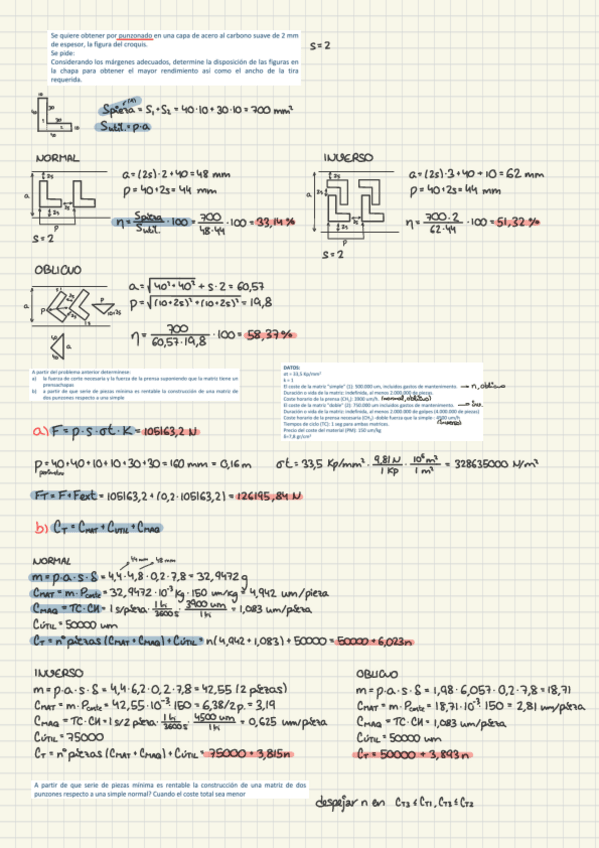 Se quiere obtener por punzonado en una capa de acero al carbono suave de 2 mm
de espesor, la figura del croquis.
Se pide:
Considerando los márgenes adecuados, determine la disposición de las figuras en
la chapa para obtener el mayor rendimiento así como el ancho de la tira
requerida.
S=2
Spieza = S₁+S₂ = 40·10+30·10 = 700 mm²
Sutil = p·a
NORMAL
a=(2s)·2+40=48 mm
p=40+2s=44 mm
η = Spieza/Sutil · 100 = 700/48·44 · 100 = 33,14%
S=2
INVERSO
a=(2s)·3+40+10=62 mm
p=40+2s=44 mm
η = 700·2/62·44 · 100 = 51,32%
S=2
OBLICUO
a=√40²+40² + s·2 = 60,57
p=√(10+2s)²+(10+2s)² = 19,8
η = 700/60,57·19,8 · 100 = 58,37%
A partir del problema anterior determinese:
a) la fuerza de corte necesaria y la fuerza de la prensa suponiendo que la matriz tiene un
prensachapas
b) a partir de que serie de piezas mínima es rentable la construcción de una matriz de
dos punzones respecto a una simple
DATOS:
σt = 33,5 Kp/mm²
k = 1
El coste de la matriz "simple" (1): 500.000 um, incluidos gastos de mantenimiento.
Duración o vida de la matriz: indefinida, al menos 2.000.000 de piezas
Coste horario de la prensa (CH₁): 3900 um/h. (normal, oblicuo)
El coste de la matriz "doble" (2): 750.000 um incluidos gastos de mantenimiento.
Duración o vida de la matriz: indefinida, al menos 2.000.000 de golpes (4.000.000 de piezas)
Coste horario de la prensa necesaria (CH₂) -doble fuerza que la simple-: 4500 um/h
Tiempos de ciclo (TC): 1 seg para ambas matrices.
Precio del coste del material (PM): 150 um/kg
δ=7,8 gr/cm³
a) F = p·s·σt·K = 105163,2 N
p=40+40+10+10+30+30=160 mm = 0,16 m
σt = 33,5 Kp/mm² · 9,81 N/1 Kp · 10⁶ m²/1 m² = 328635000 N/m²
FT = F+Fext = 105163,2+(0,2·105163,2) = 126195,84 N
b) CT = CMAT + CUTIL + CMAQ
NORMAL
44mm 48mm
m = p·a·s·δ = 4,4·4,8·0,2·7,8 = 32,9472 g
CMAT = m·Pcorte = 32,9472·10⁻³ Kg·150 um/kg = 4,942 um/pieza
CMAQ = TC·CH = 1 s/pieza · 1h/3600s · 3900 um/1h = 1,083 um/pieza
CÚTIL = 50000 um
CT = nº piezas (CMAT + CMAQ) + CÚTIL = n(4,942+1,083)+50000 = 50000+6,023n
INVERSO
m = p·a·s·δ = 4,4·6,2·0,2·7,8 = 42,55 (2 piezas)
CMAT = m·Pcorte = 42,55·10⁻³·150 = 6,38/2p. = 3,19
CMAQ = TC·CH = 1 s/2 pieza · 1h/3600s · 4500 um/1h = 0,625 um/pieza
CÚTIL = 75000
CT = nº piezas (CMAT + CMAQ) + CÚTIL = 75000 + 3,815n
OBLICUO
m = p·a·s·δ = 1,98·6,057·0,2·7,8 = 18,71
CMAT = m·Pcorte = 18,71·10⁻³·150 = 2,81 um/pieza
CMAQ = TC·CH = 1,083 um/pieza
CÚTIL = 50000 um
CT = 50000 + 3,893n
A partir de que serie de piezas mínima es rentable la construcción de una matriz de dos
punzones respecto a una simple normal? Cuando el coste total sea menor
despejar n en CT3 ≤ CT1, CT3 ≤ CT2